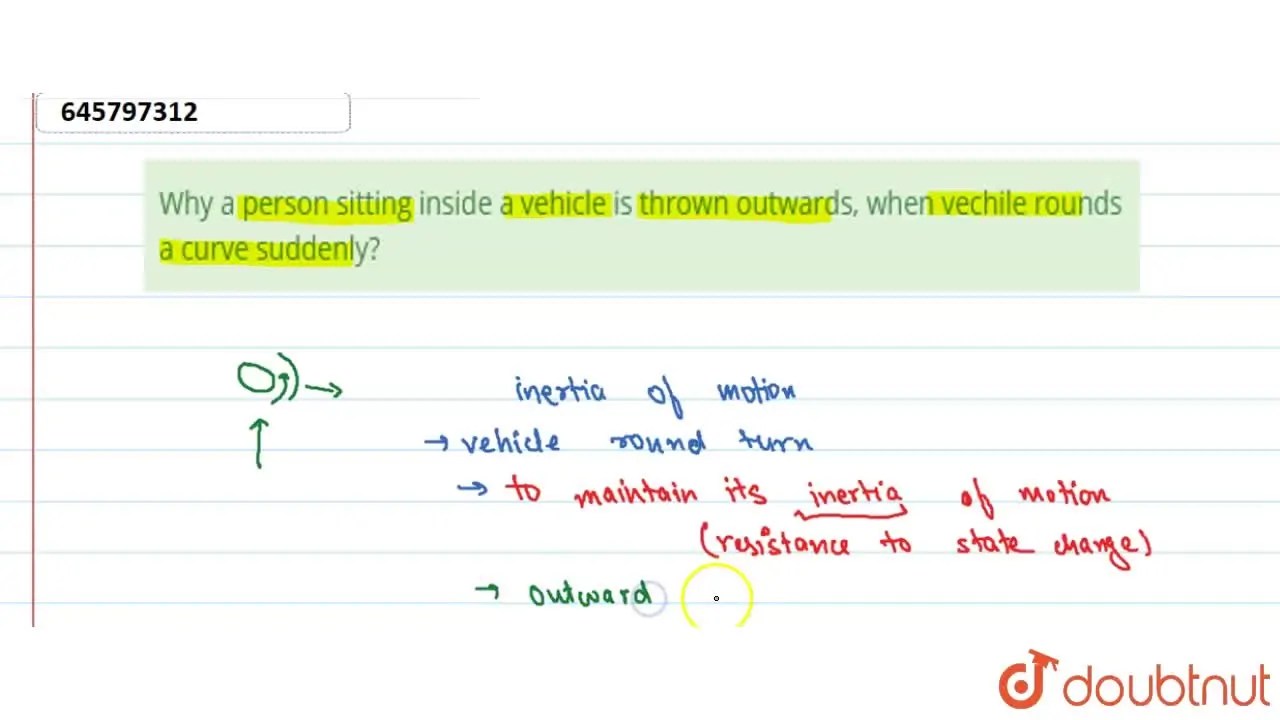 645797312
Why a person sitting inside a vehicle is thrown outwards, when vechile rounds
a curve suddenly?
inertia of motion
→ vehicle round turn
→ to maintain its inertia of motion
(resistance to state change)
→ outward
doubtnut